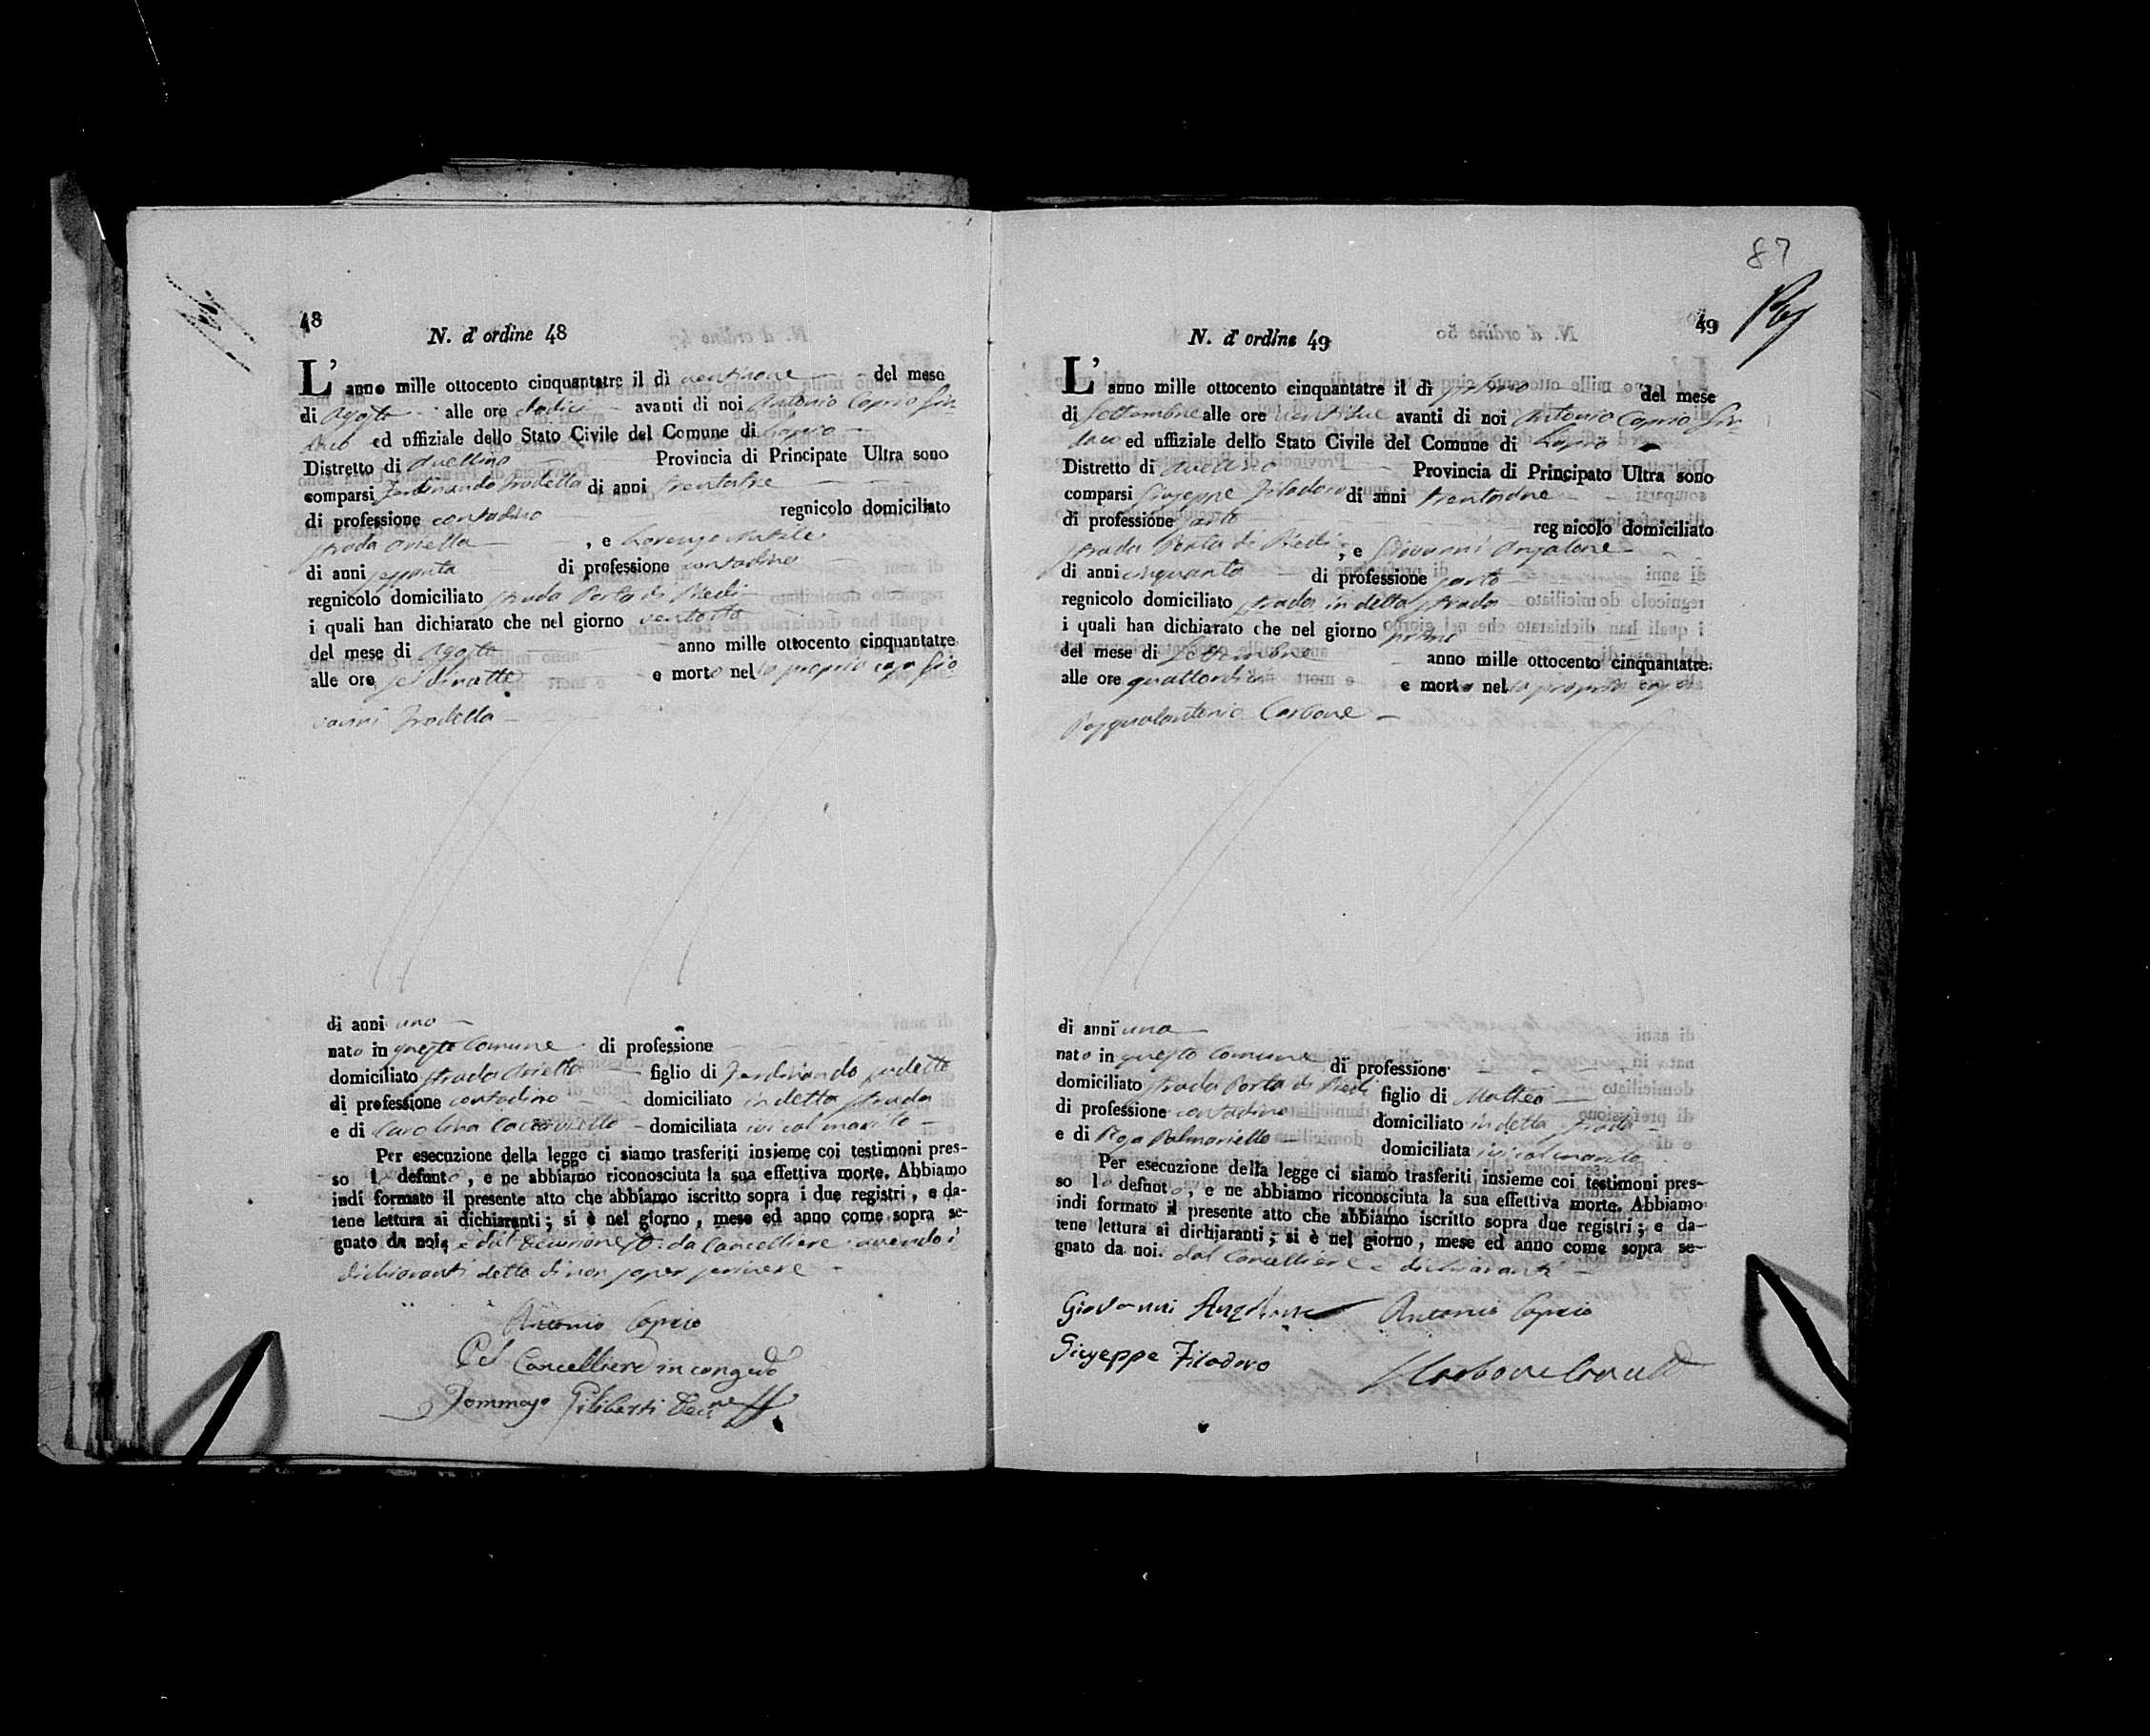 48
N. d' ordine 48
L' anno mille ottocento cinquantatre il dì ventinove del mese
di Agosto alle ore dodici avanti di noi Antonio Caprio Sin-
daco ed uffiziale dello Stato Civile del Comune di Lapio
Distretto di Avellino Provincia di Principate Ultra sono
comparsi Ferdinando di anni trentatre
di professione contadino regnicolo domiciliato
strada , e Lorenzo Natile
di anni sessanta di professione contadino
regnicolo domiciliato strada Porta di Piedi
i quali han dichiarato che nel giorno ventotto
del mese di Agosto anno mille ottocento cinquantatre
alle ore sei di notte e morto nella propria casa Gio
vanni
di anni uno
nato in questo Comune di professione
domiciliato strada figlio di Ferdinando
di professione contadino domiciliato in detta strada
e di Carolina domiciliata ivi col marito
Per esecuzione della legge ci siamo trasferiti insieme coi testimoni pres-
so lo defunto, e ne abbiamo riconosciuta la sua effettiva morte. Abbiamo
indi formato il presente atto che abbiamo iscritto sopra i due registri, e da-
tene lettura ai dichiaranti; si è nel giorno, mese ed anno come sopra se-
gnato da noi, e dal Decurione da Cancelliere avendo i
dichiaranti detto di non saper scrivere
Antonio Caprio
Pel Cancelliere in congedo
Tommaso Giliberti
87
49
N. d' ordine 49
L' anno mille ottocento cinquantatre il dì primo del mese
di Settembre alle ore ventidue avanti di noi Antonio Caprio Sin-
daco ed uffiziale dello Stato Civile del Comune di Lapio
Distretto di Avellino Provincia di Principato Ultra sono
comparsi Giuseppe Filadoro di anni trentadue
di professione sarto regnicolo domiciliato
strada Porta di Piedi, e Giovanni Anzalone
di anni cinquanta di professione sarto
regnicolo domiciliato strada in detta strada
i quali han dichiarato che nel giorno primo
del mese di Settembre anno mille ottocento cinquantatre
alle ore quattordici e morto nella propria casa
Pasqualantonio Carbone
di anni uno
nato in questo Comune di professione
domiciliato strada Porta di Piedi figlio di Matteo
di professione contadino domiciliato in detta strada
e di Rosa Palmariello domiciliata ivi col marito
Per esecuzione della legge ci siamo trasferiti insieme coi testimoni pres-
so lo defunto, e ne abbiamo riconosciuta la sua effettiva morte. Abbiamo
indi formato il presente atto che abbiamo iscritto sopra due registri; e da-
tene lettura ai dichiaranti; si è nel giorno, mese ed anno come sopra se-
gnato da noi. dal Cancelliere e dichiaranti
Giovanni Anzalone Antonio Caprio
Giuseppe Filadoro Carbone